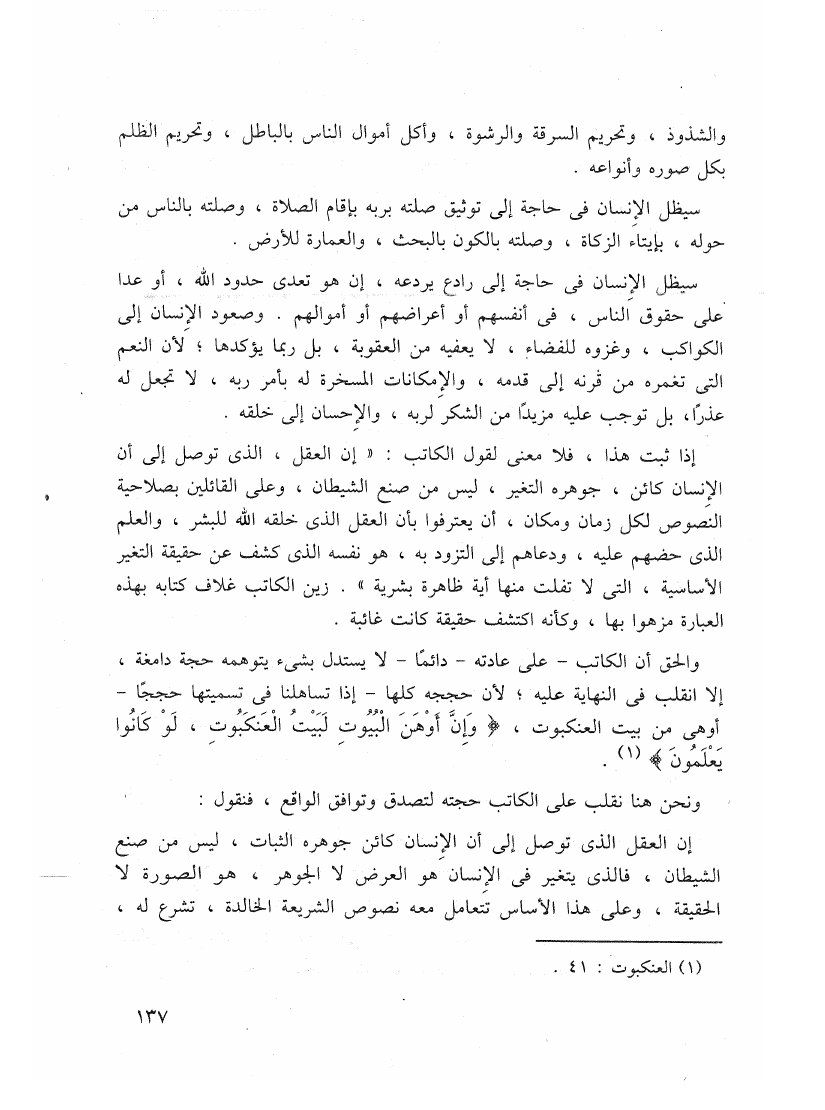 والشذوذ ، وتحريم السرقة والرشوة ، وأكل أموال الناس بالباطل ، وتحريم الظلم
بكل صوره وأنواعه .
سيظل الإنسان فى حاجة إلى توثيق صلته بربه بإقام الصلاة ، وصلته بالناس من
حوله ، بإيتاء الزكاة ، وصلته بالكون بالبحث ، والعمارة للأرض .
سيظل الإنسان فى حاجة إلى رادع يردعه ، إن هو تعدى حدود الله ، أو عدا
على حقوق الناس ، فى أنفسهم أو أعراضهم أو أموالهم . وصعود الإنسان إلى
الكواكب ، وغزوه للفضاء ، لا يعفيه من العقوبة ، بل ربما يؤكدها ؛ لأن النعم
التى تغمره من قرنه إلى قدمه ، والإمكانات المسخرة له بأمر ربه ، لا تجعل له
عذرًا، بل توجب عليه مزيدًا من الشكر لربه ، والإحسان إلى خلقه .
إذا ثبت هذا ، فلا معنى لقول الكاتب : « إن العقل ، الذى توصل إلى أن
الإنسان كائن ، جوهره التغير ، ليس من صنع الشيطان ، وعلى القائلين بصلاحية
النصوص لكل زمان ومكان ، أن يعترفوا بأن العقل الذى خلقه الله للبشر ، والعلم
الذى حضهم عليه ، ودعاهم إلى التزود به ، هو نفسه الذى كشف عن حقيقة التغير
الأساسية ، التى لا تفلت منها أية ظاهرة بشرية » . زين الكاتب غلاف كتابه بهذه
العبارة مزهوا بها ، وكأنه اكتشف حقيقة كانت غائبة .
والحق أن الكاتب – على عادته – دائمًا – لا يستدل بشىء يتوهمه حجة دامغة ،
إلا انقلب فى النهاية عليه ؛ لأن حججه كلها – إذا تساهلنا فى تسميتها حججًا –
أوهى من بيت العنكبوت ، ﴿ وَإِنَّ أَوْهَنَ الْبُيُوتِ لَبَيْتُ الْعَنكَبُوتِ ، لَوْ كَانُوا
يَعْلَمُونَ ﴾ (١) .
ونحن هنا نقلب على الكاتب حجته لتصدق وتوافق الواقع ، فنقول :
إن العقل الذى توصل إلى أن الإنسان كائن جوهره الثبات ، ليس من صنع
الشيطان ، فالذى يتغير فى الإنسان هو العرض لا الجوهر ، هو الصورة لا
الحقيقة ، وعلى هذا الأساس تتعامل معه نصوص الشريعة الخالدة ، تشرع له ،
(١) العنكبوت : ٤١ .
١٣٧